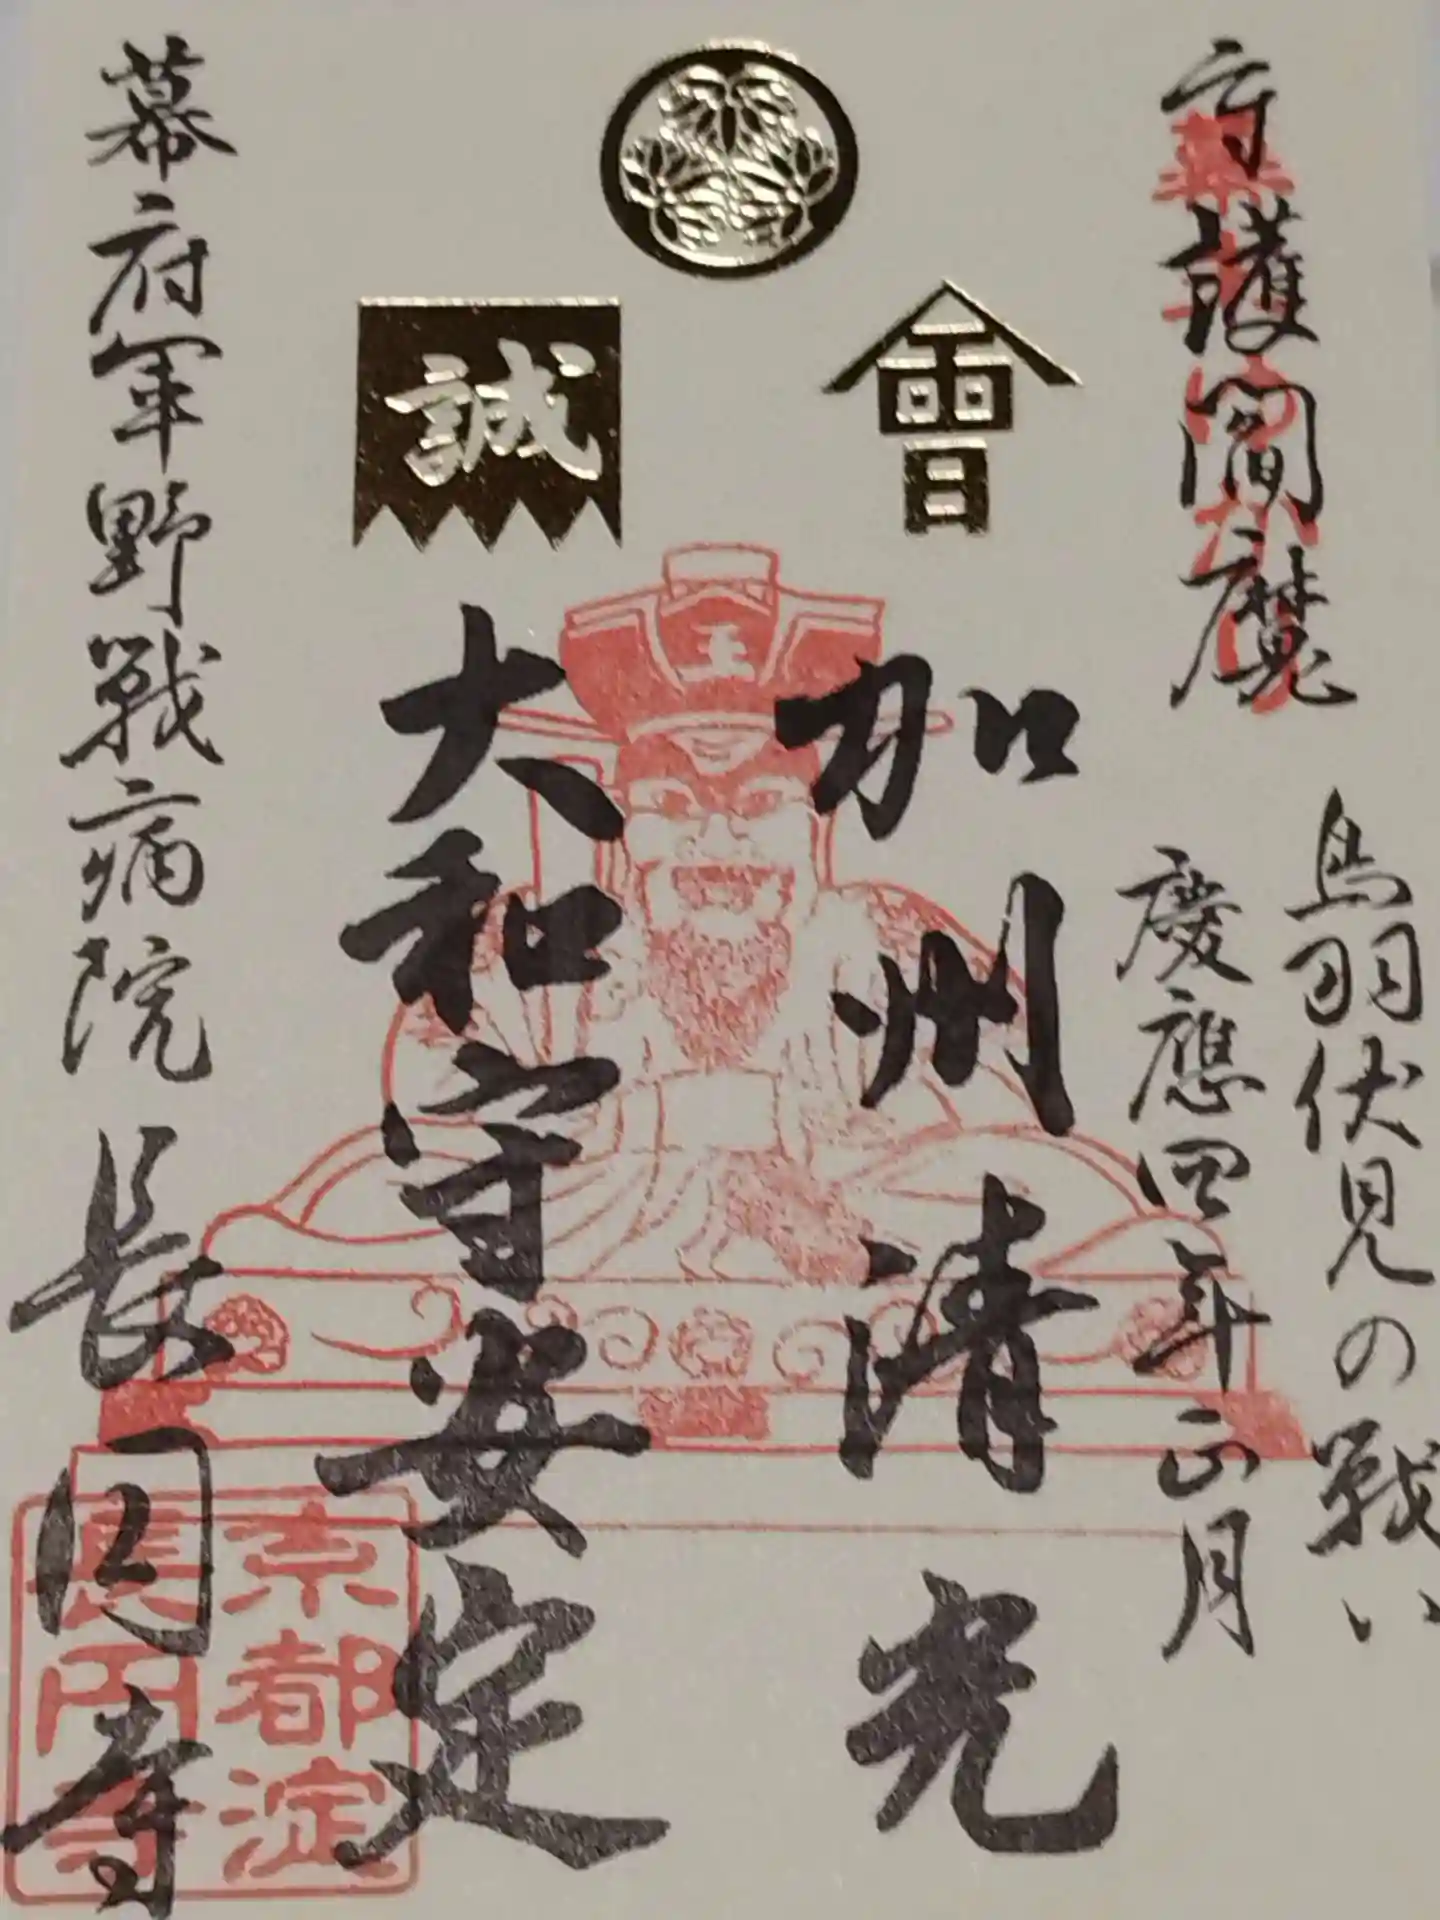 守護閻魔
鳥羽伏見の戦い
慶應四年正月
會
加州清光
誠
王
大和守安定
幕府軍野戦病院 長円寺
京都淀
長円寺